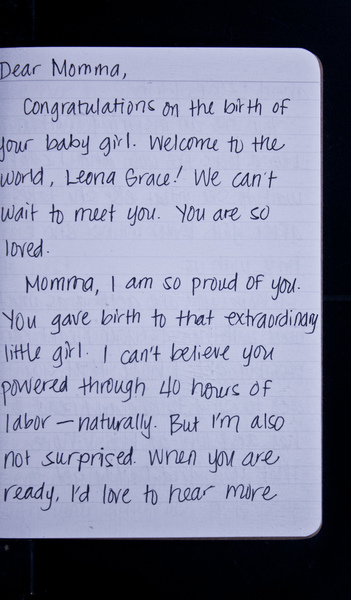 Dear Momma,
Congratulations on the birth of
your baby girl. Welcome to the
world, Leona Grace! We can't
wait to meet you. You are so
loved.
Momma, I am so proud of you.
You gave birth to that extraordinary
little girl. I can't believe you
powered through 40 hours of
labor — naturally. But I'm also
not surprised. When you are
ready, I'd love to hear more